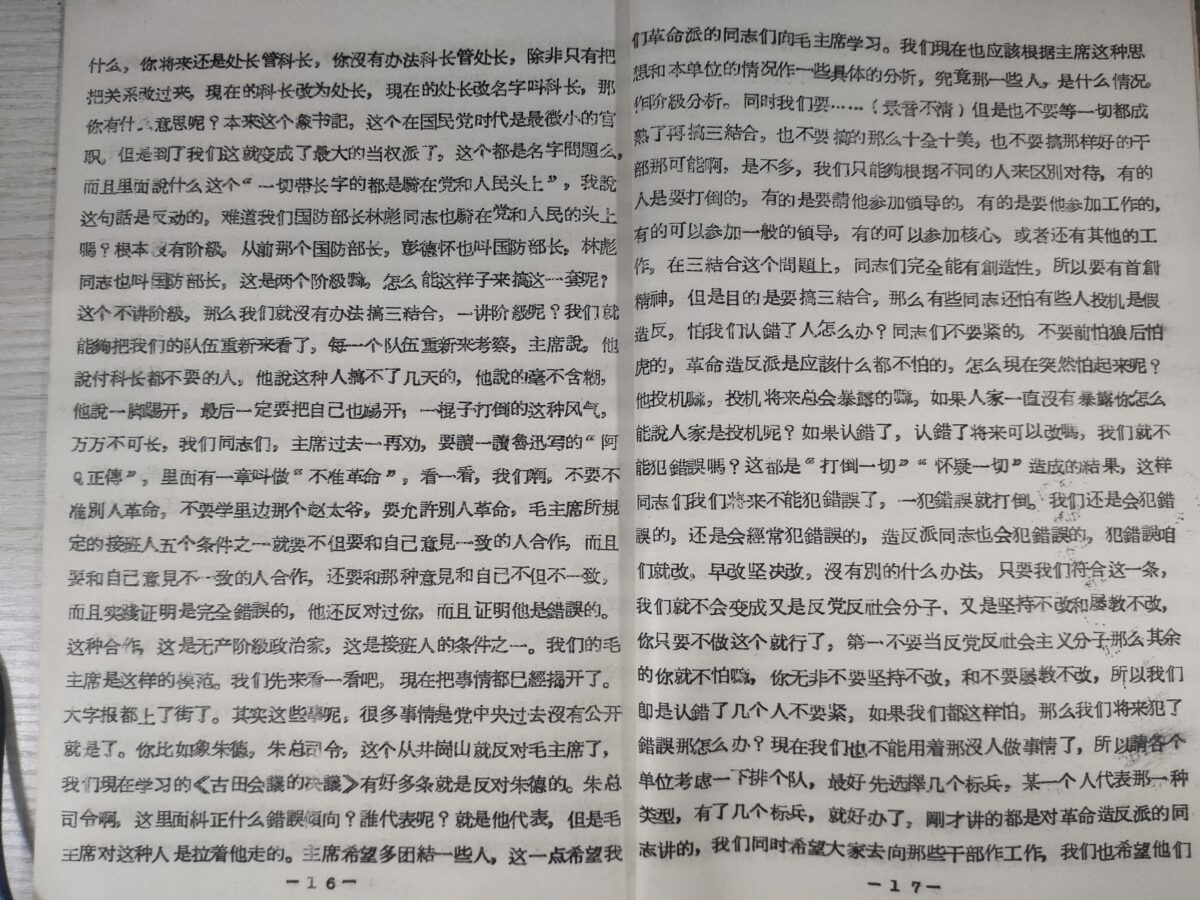 什么，你将来还是处长管科长，你沒有办法科长管处长，除非只有把
把关系改过来，現在的科长改为处长，現在的处长改名字叫科长，那
你有什么意思呢？本来这个象书記，这个在国民党时代是最微小的官
职，但是到了我们这就变成了最大的当权派了，这个都是名字問題么，
而且里面說什么这个“一切带长字的都是騎在党和人民头上”，我說
这句話是反动的，难道我们国防部长林彪同志也騎在党和人民的头上
嗎？根本沒有阶級，从前那个国防部长，彭德怀也叫国防部长，林彪
同志也叫国防部长，这是两个阶級嘛，怎么能这样子来搞这一套呢？
这个不讲阶級，那么我们就沒有办法搞三結合，一讲阶級呢？我们就
能夠把我们的队伍重新来看了，每一个队伍重新来考察，主席說，他
說付科长都不要的人，他說这种人搞不了几天的，他說的毫不含糊，
他說一脚踢开，最后一定要把自己也踢开；一棍子打倒的这种风气，
万万不可长，我们同志们，主席过去一再劝，要讀一讀魯迅写的“阿
Q正傳”，里面有一章叫做“不准革命”，看一看，我们啊，不要不
准別人革命，不要学里边那个赵太爷，要允許別人革命，毛主席所規
定的接班人五个条件之一就要不但要和自己意見一致的人合作，而且
要和自己意見不一致的人合作，还要和那种意見和自己不但不一致，
而且实践证明是完全錯誤的，他还反对过你，而且证明他是錯誤的。
这种合作，这是无产阶級政治家，这是接班人的条件之一。我们的毛
主席是这样的模范。我们先来看一看吧，現在把事情都已經揭开了。
大字报都上了街了。其实这些事呢，很多事情是党中央过去沒有公开
就是了。你比如象朱德，朱总司令，这个从井崗山就反对毛主席了，
我们現在学习的《古田会議的决議》有好多条就是反对朱德的。朱总
司令啊，这里面糾正什么錯誤傾向？誰代表呢？就是他代表，但是毛
主席对这种人是拉着他走的。主席希望多团結一些人，这一点希望我
—16—
们革命派的同志们向毛主席学习。我们現在也应該根据主席这种思
想和本单位的情况作一些具体的分析，究竟那一些人，是什么情况。
作阶級分析。同时我们要……（录音不清）但是也不要等一切都成
熟了再搞三結合，也不要搞的那么十全十美，也不要搞那样好的干
部那可能啊，是不多，我们只能夠根据不同的人来区別对待，有的
人是要打倒的，有的是要請他参加領导的，有的是要他参加工作的，
有的可以参加一般的領导，有的可以参加核心，或者还有其他的工
作，在三結合这个問題上，同志们完全能有創造性，所以要有首創
精神，但是目的是要搞三結合，那么有些同志还怕有些人投机是假
造反，怕我们认錯了人怎么办？同志们不要紧的，不要前怕狼后怕
虎的，革命造反派是应該什么都不怕的，怎么現在突然怕起来呢？
他投机嘛，投机将来总会暴露的嘛，如果人家一直沒有暴露你怎么
能說人家是投机呢？如果认錯了，认錯了将来可以改嗎，我们就不
能犯錯誤嗎？这都是“打倒一切”“怀疑一切”造成的結果，这样
同志们我们将来不能犯錯誤了，一犯錯誤就打倒。我们还是会犯錯
誤的，还是会經常犯錯誤的，造反派同志也会犯錯誤的，犯錯誤咱
们就改，早改坚决改，沒有別的什么办法，只要我们符合这一条，
我们就不会变成又是反党反社会分子，又是坚持不改和屡教不改，
你只要不做这个就行了，第一不要当反党反社会主义分子那么其余
的你就不怕嘛，你无非不要坚持不改，和不要屡教不改，所以我们
卽是认錯了几个人不要紧，如果我们都这样怕，那么我们将来犯了
錯誤那怎么办？現在我们也不能用着那沒人做事情了，所以請各个
单位考虑一下排个队，最好先选擇几个标兵，某一个人代表那一种
类型，有了几个标兵，就好办了，剛才讲的都是对革命造反派的同
志讲的，我们同时希望大家去向那些干部作工作，我们也希望他们
—17—